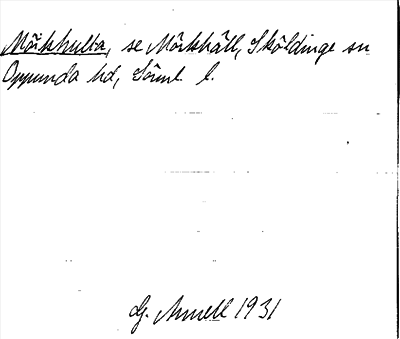 Mörkhulta, se Mörkhåll, Sköldinge sn
Oppunda hd, Söml. l.
G. Annell 1931